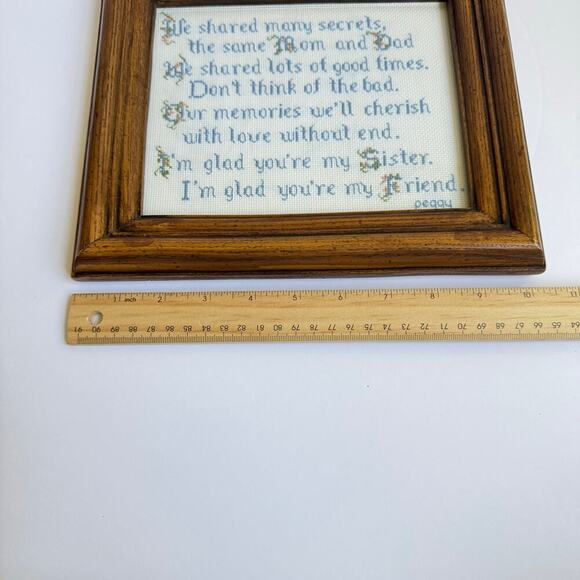 We shared many secrets,
the same Mom and Dad
We shared lots of good times.
Don't think of the bad.
Our memories we'll cherish
with love without end.
I'm glad you're my Sister.
I'm glad you're my Friend.
peggy
1 inch 2 3 4 5 6 7 8 9 10 11
91 90 89 88 87 86 85 84 83 82 81 80 79 78 77 76 75 74 73 72 71 70 69 68 67 66 65 64